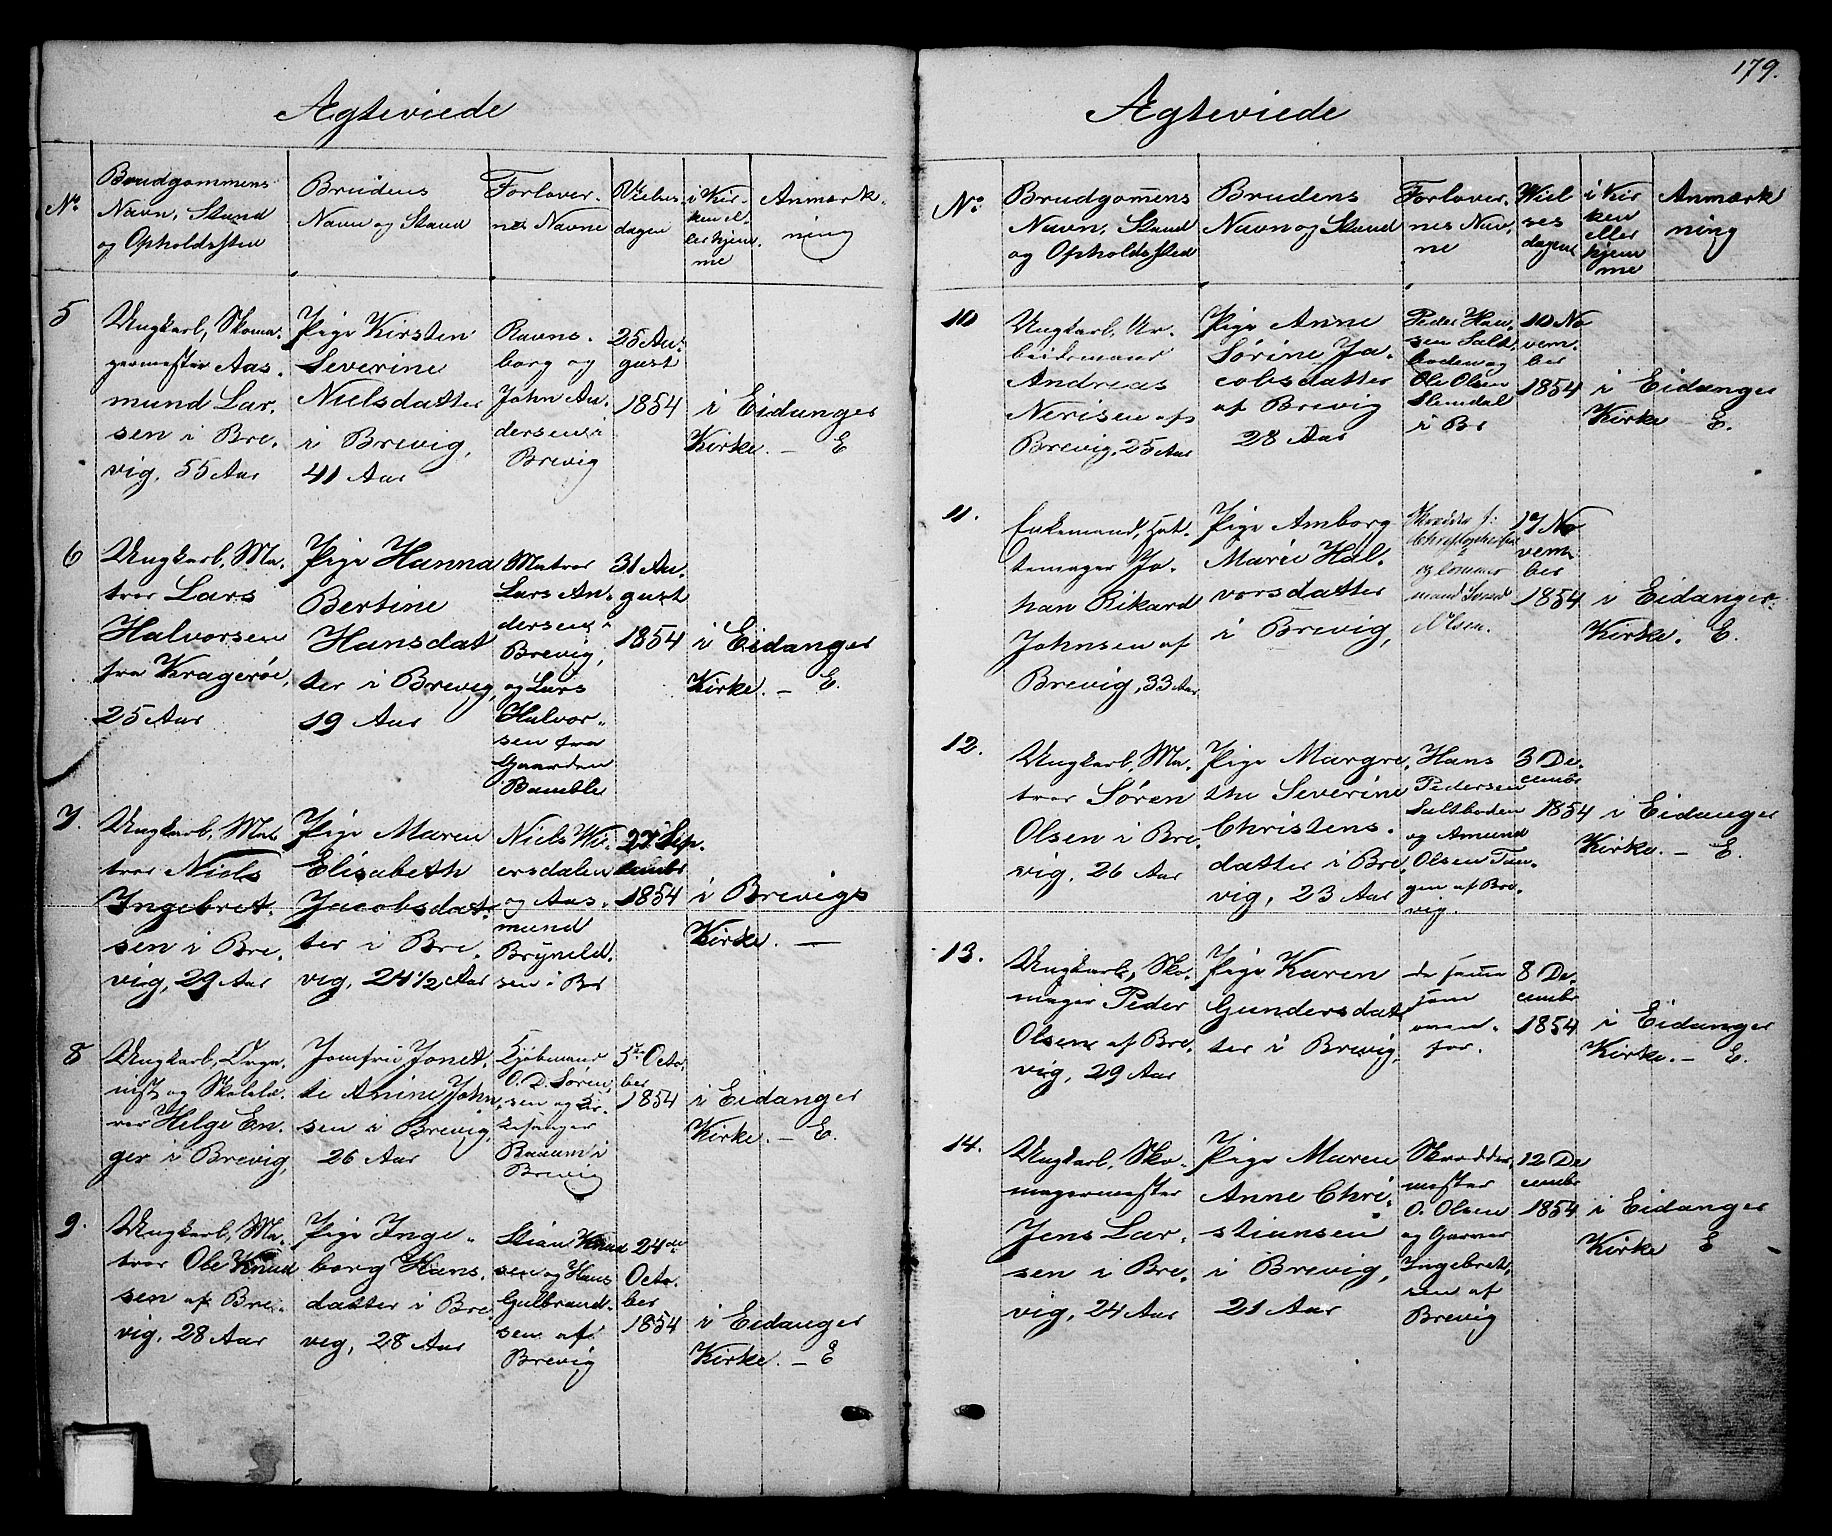 Ægteviede
No
Brudgommens
Navn, Stand
og Opholdssted
Brudens
Navn og Stand
Forlover-
nes Navne
Vielses
dagen
i Kir-
ken el-
ler hjem-
me
Anmærk-
ning
5
Ungkarl, Skoma-
germester Aas-
mund Lar-
sen i Bre-
vig, 55 Aar
Pige Kirsten
Severine
Nielsdatter
i Brevig,
41 Aar
Ravns-
borg og
John An-
dersen i
Brevig
25 Au-
gust
1854
i Eidanger
Kirke. — E
6
Ungkarl, Ma-
tros Lars
Halvorsen
fra Kragerøe,
25 Aar
Pige Hanna
Bertine
Hansdat
ter i Brevig,
19 Aar
Matros
Lars An-
dersen i
Brevig,
og Lars
Halvor-
sen fra
Gaarden
Bamble
31 Au-
gust
1854
i Eidanger
Kirke. — E.
7.
Ungkarl, Ma-
tros Niels
Ingebret-
sen i Bre-
vig, 29 Aar
Pige Maren
Elisabeth
Jacobsdat-
ter i Bre
vig, 24 1/2 Aar
Niels Wi-
ersdalen
og Aas-
mund
Bryneld-
sen i Br
27 Sep-
tember
1854
i Brevigs
Kirke. —
8
Ungkarl, Orga-
nist og Skolelæ-
rer Helge En-
ger i Brevig,
Jomfru Jonet-
te Anine John-
sen i Brevig,
26 Aar
Kjøbmand
O. D. Søren-
sen og Kir-
kesanger
Baaum i
Brevig
5te Octo-
ber
1854
i Eidanger
Kirke. — E.
9.
Ungkarl, Ma-
tros Ole Knud
sen af Bre-
vig, 28 Aar
Pige Inge-
borg Hans-
datter i Bre
vig, 28 Aar
Stian Knud
sen og Hans
Gulbrand-
sen af
Brevig
24de
Octo-
ber
1854
i Eidanger
Kirke. — E
179.
Ægteviede
No
Brudgomens
Navn, Stand
og Opholdssted
Brudens
Navn og Stand
Forlover-
nes Nav-
ne
Viel
ses
dagen
i Kir
ken
eller
hjem
me
Anmærk
ning
10
Ungkarl, Ar-
beidsmand
Andreas
Nerisen af
Brevig, 25 Aar
Pige Anne
Sørine Ja-
cobsdatter
af Brevig
28 Aar
Peder Han-
sen Salt-
boden og
Ole Olsen
Stendal
i Br
10 No
vem-
ber
1854
i Eidanger
Kirke — E.
11.
Enkemand, Hat-
temager Jo-
han Rikard
Johnsen af
Brevig, 33 Aar
Pige Amborg
Marie Hal-
vorsdatter
i Brevig,
Skrædder
Christophersen
og
mand
Olsen.
17 No
vem-
ber
1854
i Eidanger
Kirke. E.
12.
Ungkarl, Ma-
tros Søren
Olsen i Bre-
vig, 26 Aar
Pige Margre-
the Severine
Christens-
datter i Bre
vig, 23 Aar
Hans
Pedersen
Saltboden
og Amund
Olsen Tan-
gen af Bre-
vig.
3 De-
cember
1854
i Eidanger
Kirke. — E.
13.
Ungkarl, Sko-
mager Peder
Olsen af Bre-
vig, 29 Aar
Pige Karen
Gundersdat
ter i Brevig,
de samme
som
oven-
for.
8 De-
cembr
1854
i Eidanger
Kirke. — E.
14.
Ungkarl, Sko-
magermester
Jens Lar-
sen i Bre-
vig, 24 Aar
Pige Maren
Anne Chri-
stiansen
i Brevig,
21 Aar
Skrædder
mester
O. Olsen
og Garver
Ingebret-
sen af
Brevig
12 De
cembr
1854
i Eidanger
Kirke E